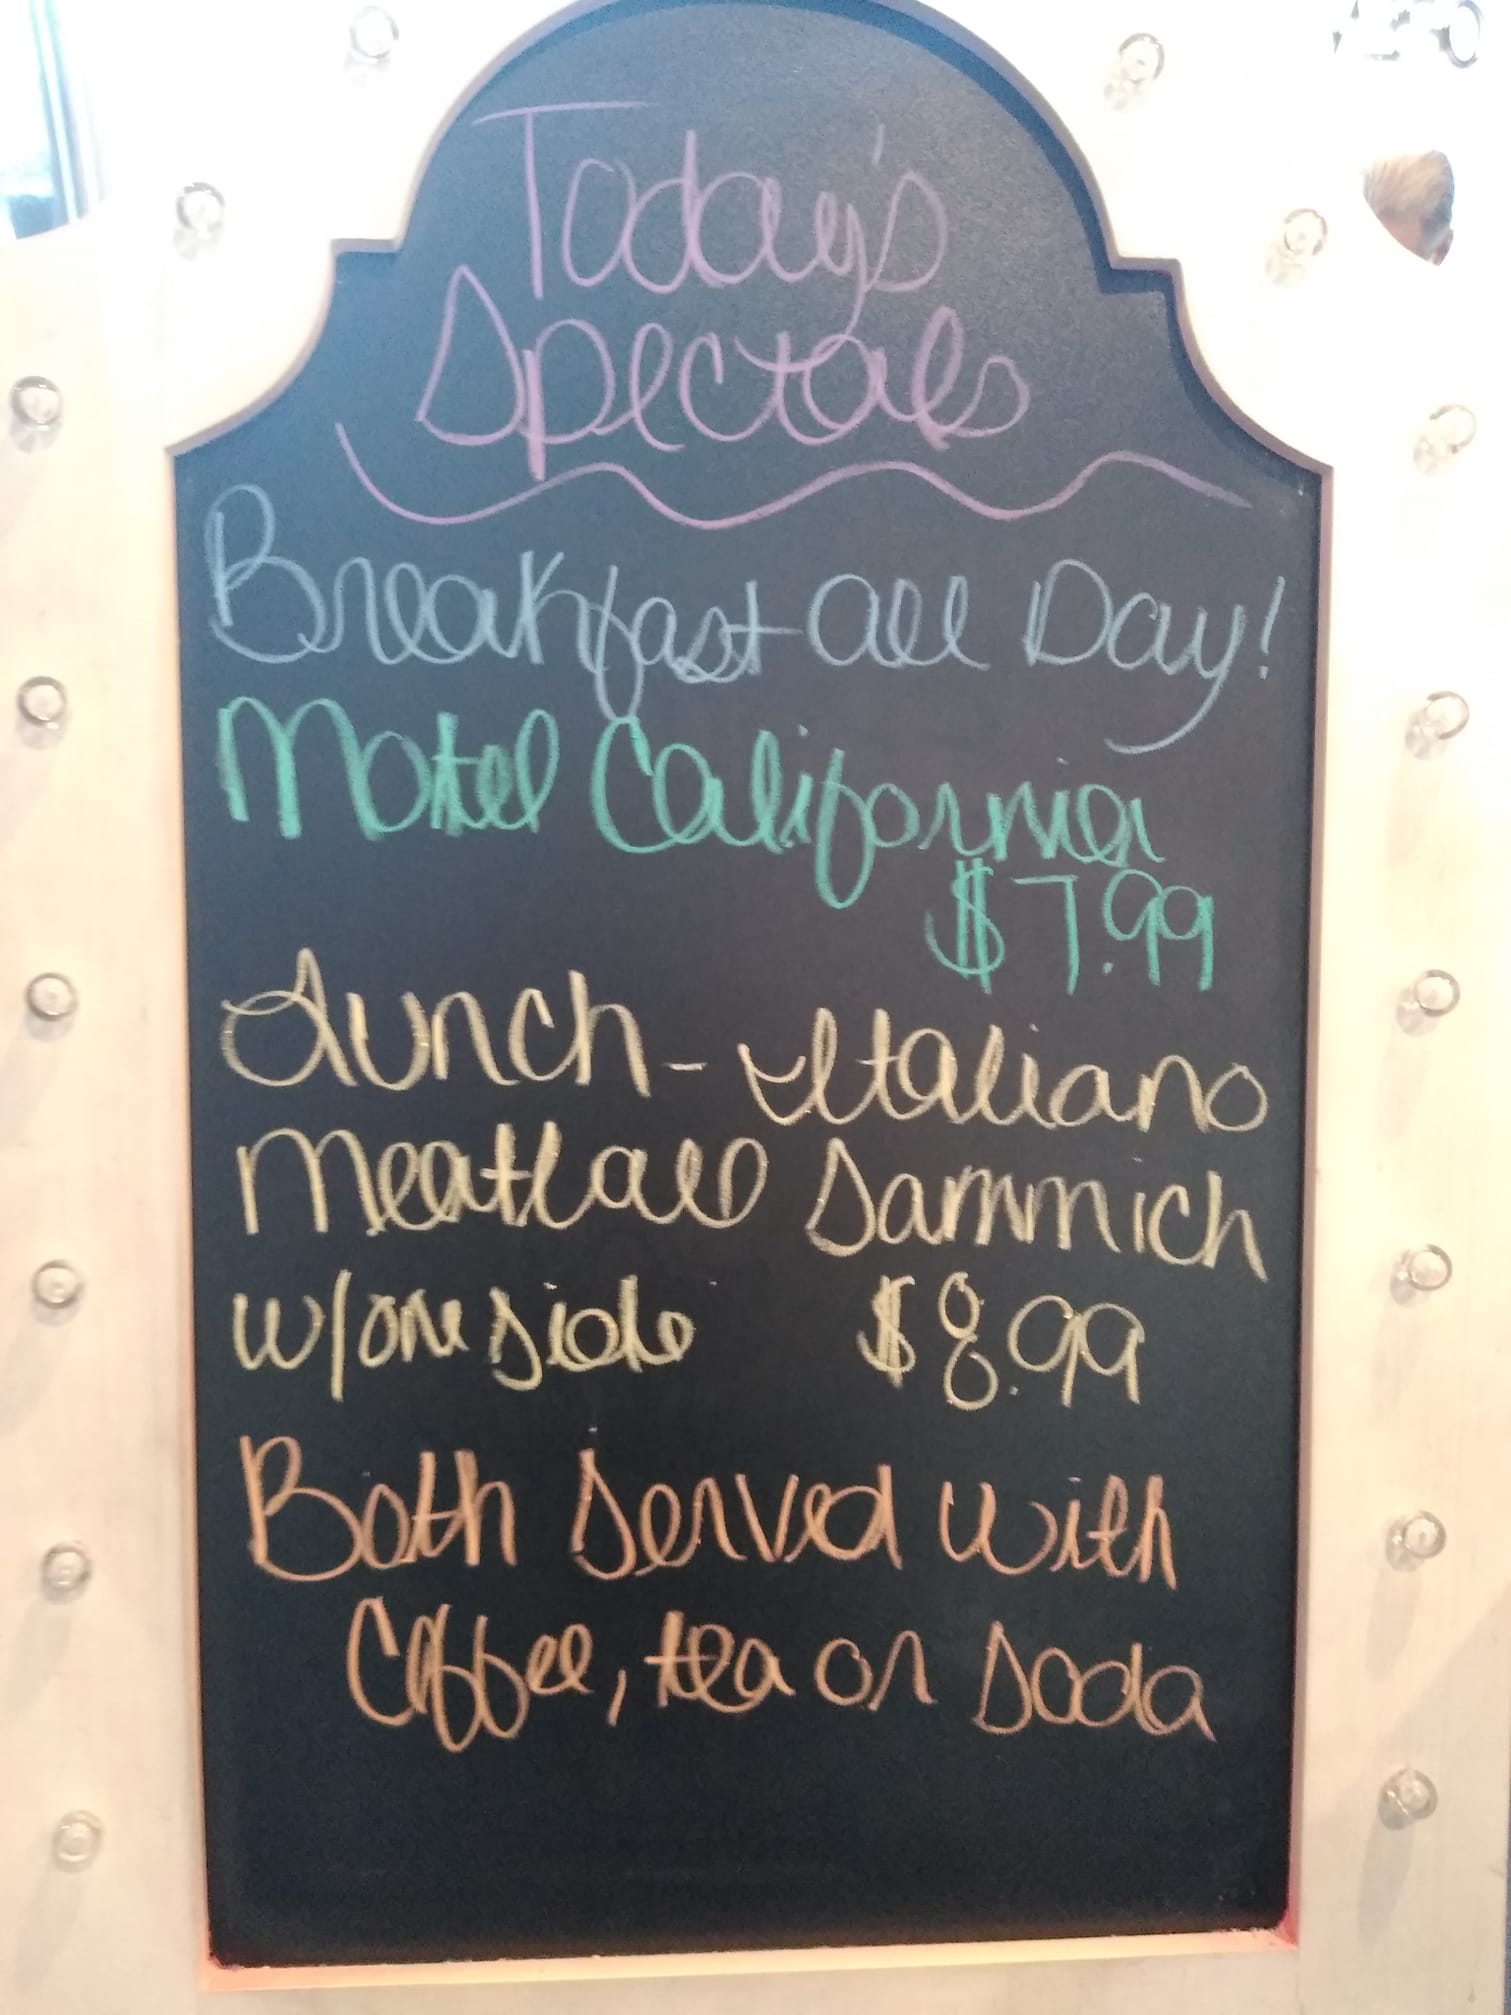 Today's
Specials
Breakfast All Day!
Motel California
$7.99
Lunch - Italiano
Meatball Sammich
w/one side $8.99
Both Served with
Coffee, tea or Soda